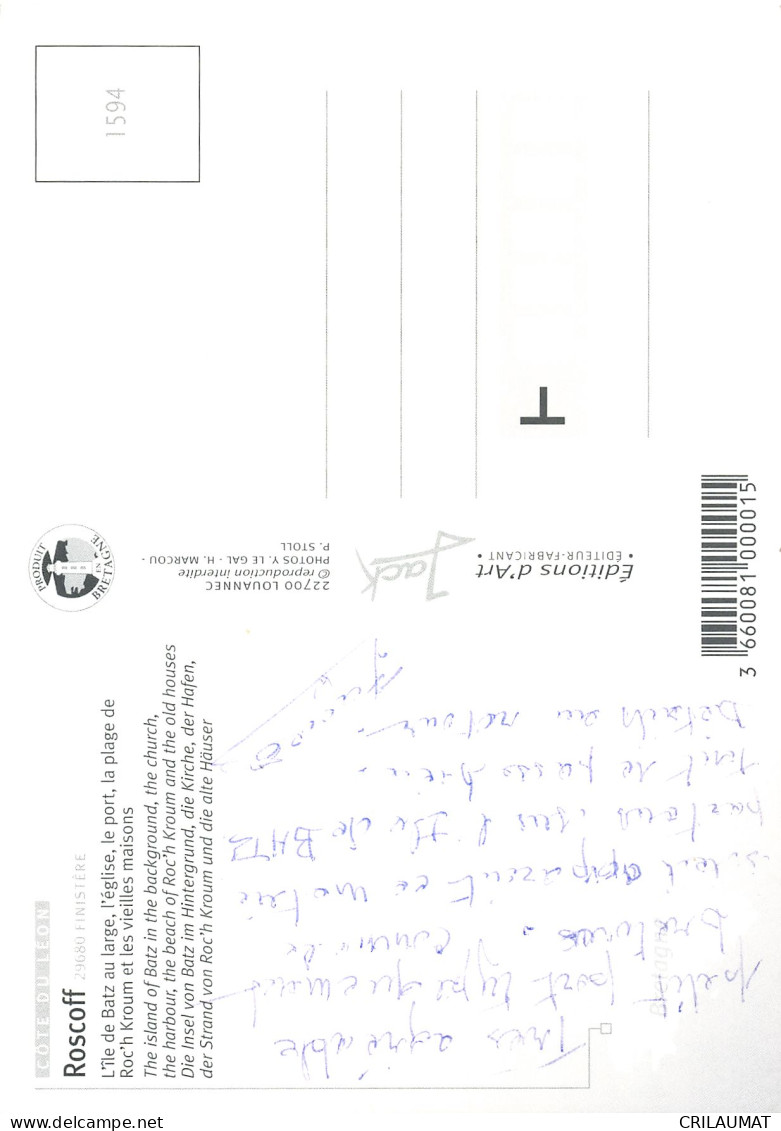 CÔTE DU LÉON
Roscoff 29680 FINISTÈRE
L'île de Batz au large, l'église, le port, la plage de
Roc'h Kroum et les vieilles maisons
The island of Batz in the background, the church,
the harbour, the beach of Roc'h Kroum and the old houses
Die Insel von Batz im Hintergrund, die Kirche, der Hafen,
der Strand von Roc'h Kroum und die alte Häuser
PRODUIT EN BRETAGNE
Très agréable
petit port typiquement
breton.
soleil apparait ce matin
partons vers l'Ile de BATZ
tout se passe bien.
Détails au retour.
22700 LOUANNEC
© reproduction interdite
PHOTOS Y. LE GAL - H. MARCOU -
P. STOLL
Jack
Éditions d'Art
• ÉDITEUR-FABRICANT •
3 660081 000015
1594
T
Bretagne
CRILAUMAT